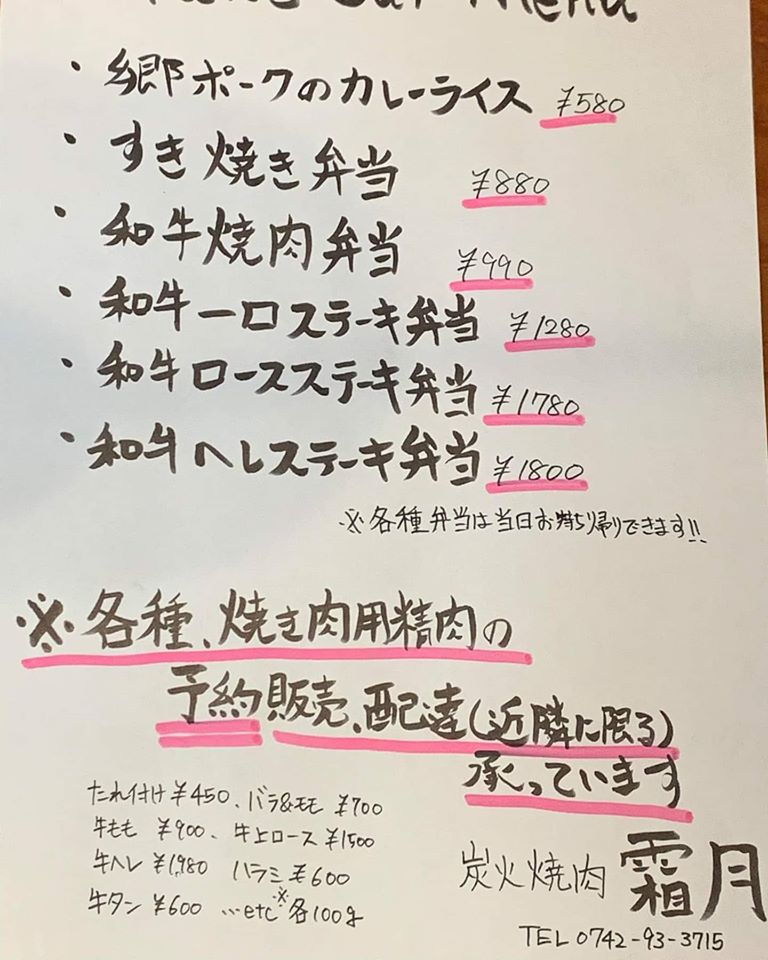 Take Out Menu
・郷ポークのカレーライス ¥580
・すき焼き弁当 ¥880
・和牛焼肉弁当 ¥990
・和牛一口ステーキ弁当 ¥1280
・和牛ロースステーキ弁当 ¥1780
・和牛ヘレステーキ弁当 ¥1800
※各種弁当は当日お持ち帰りできます!!
※各種、焼き肉用精肉の
予約販売、配達(近隣に限る)
承っています
たれ付け ¥450、バラ&モモ ¥700
牛もも ¥900、牛上ロース ¥1500
牛ヘレ ¥1,980 ハラミ ¥600
牛タン ¥600 …etc ※各100g
炭火焼肉 霜月
TEL 0742-93-3715